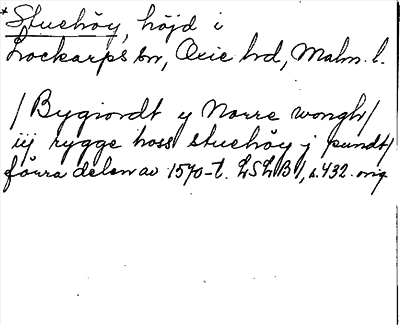 *Stuehöy, höjd i
Lockarps sn, Oxie hd, Malm. l.
/Bygiordt y Norre wongh/
iij rygge hoss stuehöy j pundt/
förra delen av 1570-t. LSLB 1, s. 432. orig